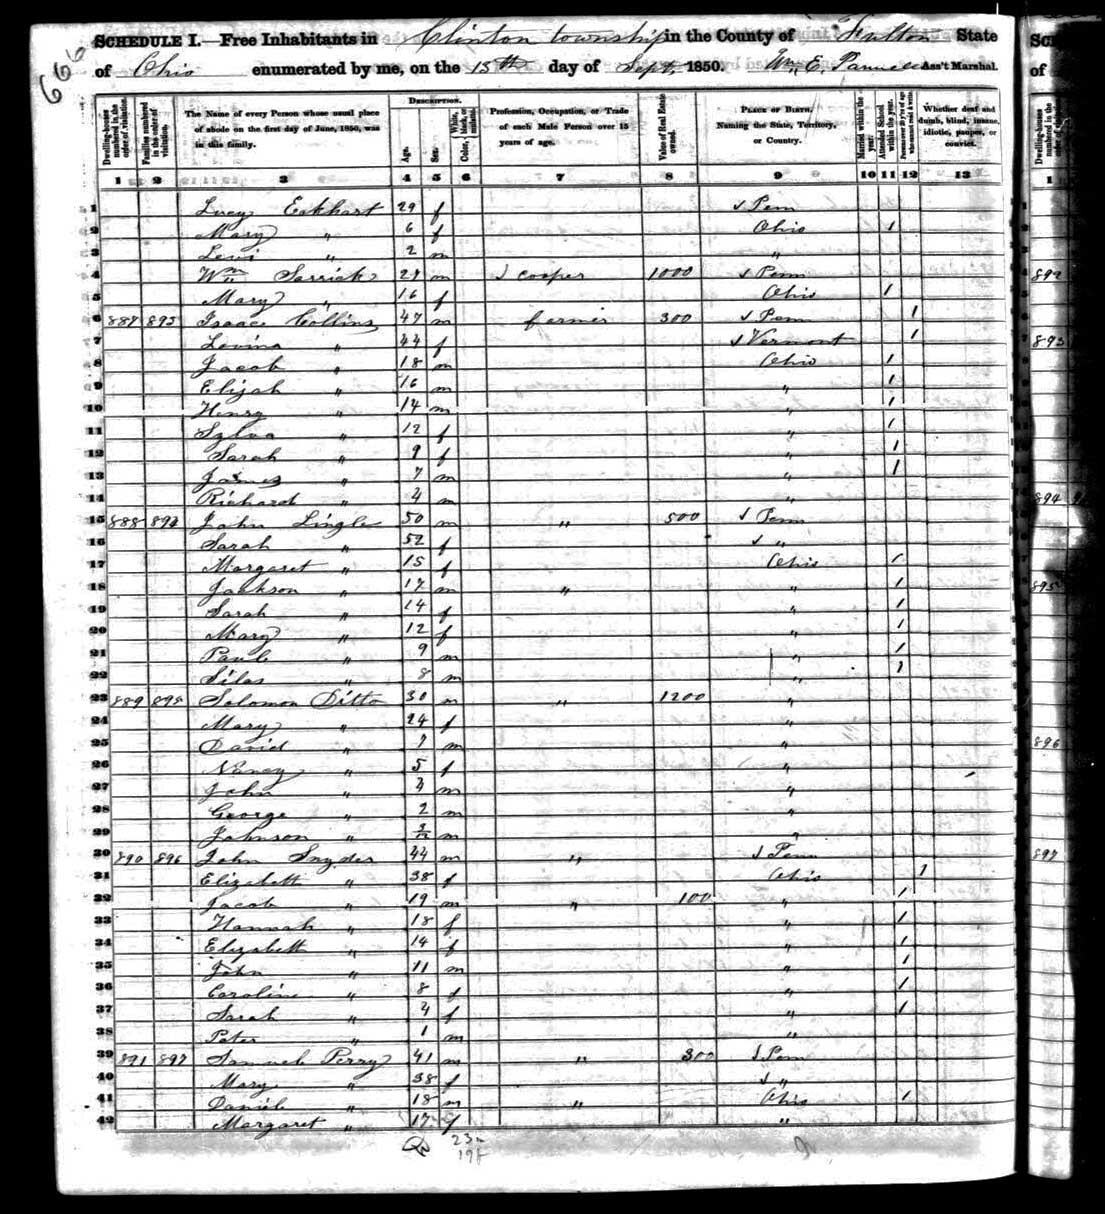 666
SCHEDULE I.—Free Inhabitants in Clinton township in the County of Fulton State
of Ohio enumerated by me, on the 15th day of Sept, 1850. Wm. E. Ass't Marshal.
Dwelling-houses numbered in the order of visitation. Families numbered in the order of visitation. The Name of every Person whose usual place of abode on the first day of June, 1850, was in this family. DESCRIPTION. Age. Sex. Color, White, black, or mulatto. Profession, Occupation, or Trade of each Male Person over 15 years of age. Value of Real Estate owned. PLACE OF BIRTH. Naming the State, Territory, or Country. Married within the year. Attended School within the year. Persons over 20 y'rs of age who cannot read & write. Whether deaf and dumb, blind, insane, idiotic, pauper, or convict.
1 2 3 4 5 6 7 8 9 10 11 12 13
1 Lucy Eakhart 29 f √ Penn
2 Mary " 6 f Ohio 1
3 Levi " 2 m "
4 Wm Sarrick 29 m √ cooper 1000 √ Penn
5 Mary " 16 f Ohio 1
6 887 893 Isaac Collins 47 m farmer 300 √ Penn 1
7 Lovina " 44 f √ Vermont 1
8 Jacob " 18 m Ohio 1
9 Elijah " 16 m " 1
10 Henry " 14 m " 1
11 Sylva " 12 f " 1
12 Sarah " 9 f " 1
13 James " 7 m " 1
14 Richard " 4 m "
15 888 894 John Lingle 50 m " 500 √ Penn
16 Sarah " 52 f √ "
17 Margaret " 15 f Ohio 1
18 Jackson " 17 m " " 1
19 Sarah " 14 f " 1
20 Mary " 12 f " 1
21 Paul " 9 m " 1
22 Silas " 8 m " 1
23 889 895 Solomon Ditto 30 m " 1200 "
24 Mary " 24 f "
25 David " 7 m "
26 Nancy " 5 f "
27 John " 4 m "
28 George " 2 m "
29 Johnson " m "
30 890 896 John Snyder 44 m " √ Penn
31 Elizabeth " 38 f Ohio 1
32 Jacob " 19 m " 100 " 1
33 Hannah " 18 f " 1
34 Elizabeth " 14 f " 1
35 John " 11 m " 1
36 Caroline " 8 f " 1
37 Sarah " 4 f " 1
38 Peter " 1 m "
39 891 897 Samuel Perry 41 m " 300 √ Penn
40 Mary " 38 f √ "
41 Daniel " 18 m " Ohio 1
42 Margaret " 17 f "
23m
19f
SC
of
1
892
893
894
895
896
897